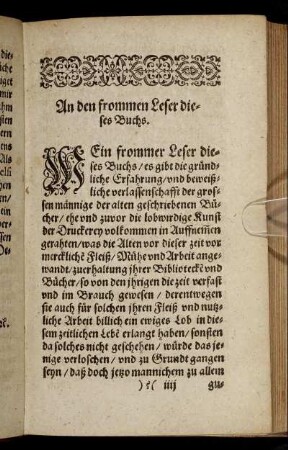 An den frommen Leser die-
ses Buchs.
MEin frommer Leser die-
ses Buchs / es gibt die gründ-
liche Erfahrung / vnd beweiß-
liche verlassenschafft der gros-
sen männige der alten geschriebenen Bü-
cher / ehe vnd zuvor die lobwirdige Kunst
der Druckerey volkommen in Auffnemẽ
gerahten / was die Alten vor dieser zeit vor
mercklichẽ Fleiß / Mühe vnd Arbeit ange-
wandt / zuerhaltung jhrer Bibliotecke vnd
Bücher / so von den jhrigen die zeit verfast
vnd im Brauch gewesen / derentwegen
sie auch für solchen jhren Fleiß vnd nutz-
liche Arbeit billich ein ewiges Lob in die-
sem zeitlichen Lebẽ erlangt haben / sonsten
da solches nicht geschehen / würde das je-
nige verloschen / vnd zu Grundt gangen
seyn / daß doch jetzo mannichem zu allem
)( iiij gu-